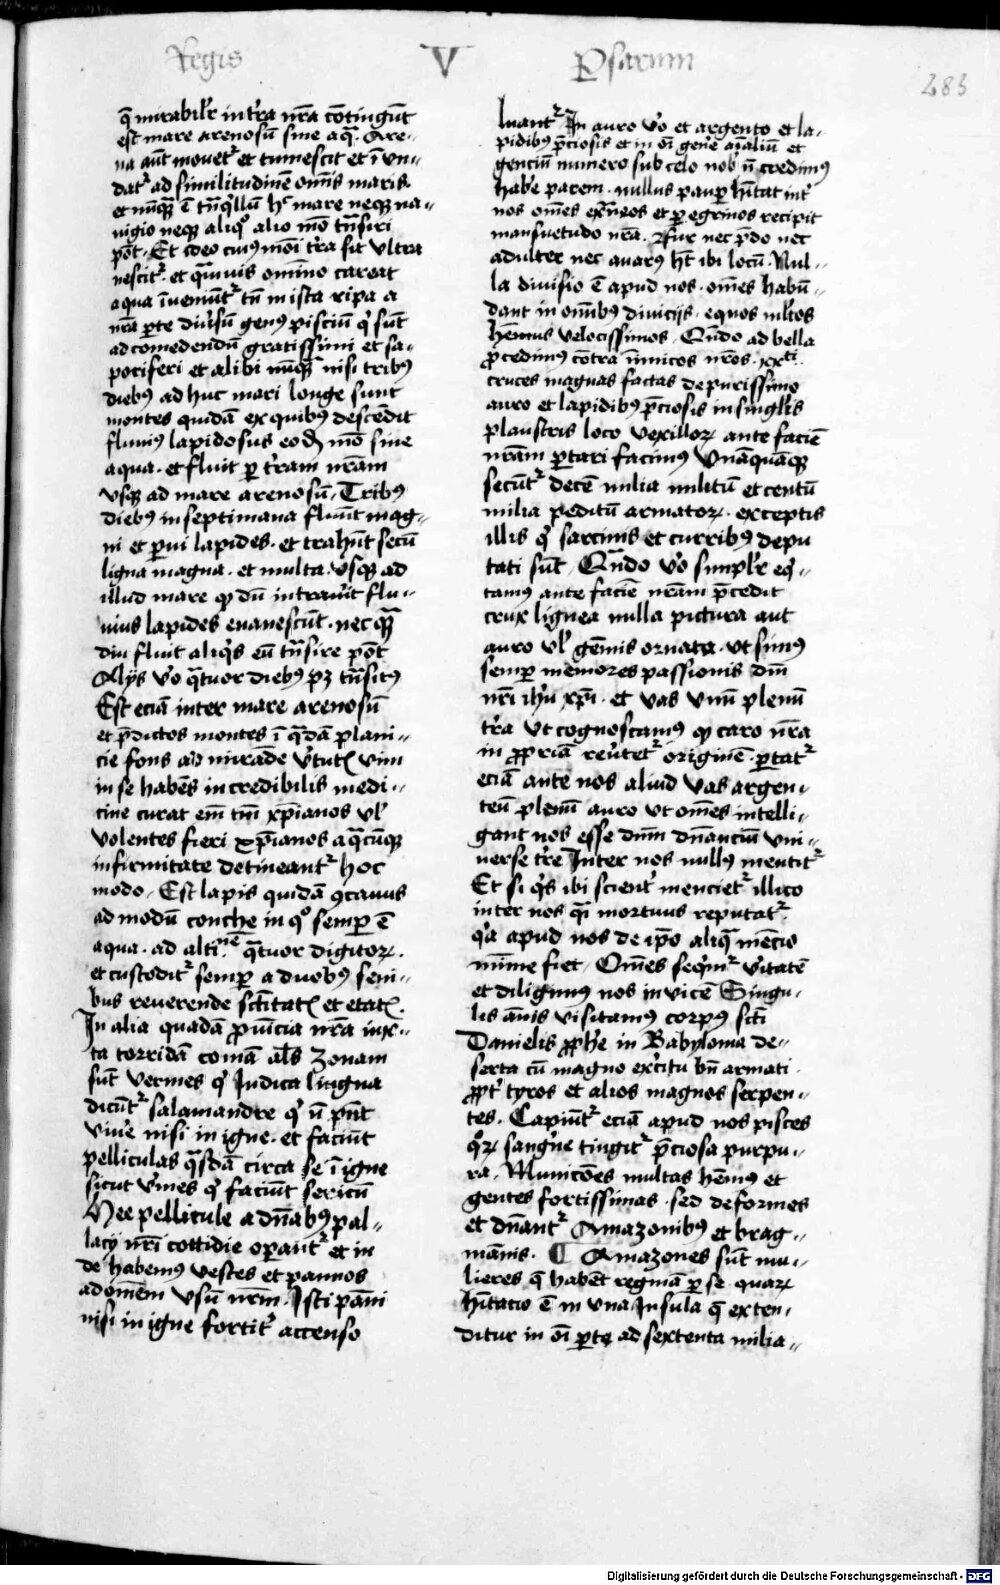 Regis V Psarum
283
q̄ mirabilr̄ in tr̄a nr̄a cōtingūt
est mare arenosū sine aq̄. Are-
na aūt mouetr̄ et tumescit et ī vn-
datr̄ ad similitudinē om̄is maris
et nūqꝫ ē tn̄q̄llū hͦ mare neqꝫ na-
uigio neqꝫ aliqͦ alio mō tn̄siri
pōt. Et ideo cuiꝰ mōi tr̄a sit vltra
nescitr̄. et q̄uis om̄ino careat
aqua īueniūtr̄ tn̄ in ista ripa a
nr̄a ꝑte diūsū genꝰ pisciū q̄ sūt
ad comedendū gratissimi et sa-
poriferi et alibi nūqꝫ uisi tribꝰ
diebꝰ ad huc mari longe sunt
montes quidā ex quibꝰ descēdit
fluuiꝰ lapidosus eodē mō sine
aqua. et fluit ꝑ tr̄am nr̄am
vsqꝫ ad mare arenosū. Tribꝰ
diebꝰ in septimana fluūt mag-
ni et ꝑui lapides. et trahūt secū
ligna magna. et multa. vsqꝫ ad
illud mare qꝫ dū intrauīt flu-
uius lapides euanescūt. nec qꝫ
diu fluit aliq̄s eū tn̄sire pōt
Alijs vͦo q̄tuor diebꝰ pꝫ tn̄sitꝰ
Est eciā inter mare arenosū
et p̄dictos montes ī q̄dā plani-
cie fons mirāde v̄tutꝭ vim
in se habēs incredibilis medi-
cine curat em̄ tm̄ xp̄ianos vl̄
volentes fieri xp̄ianos a q̄cūqꝫ
infirmitate detineantr̄ hoc
modo. Est lapis quidā ꝯcauus
ad modū conche in qͦ semꝑ ē
aqua. ad altinē q̄tuor digitoꝝ.
et custoditr̄ semꝑ a duobꝰ seni-
bus reuerende sc̄titatꝭ et etatꝭ.
In alia quadā ꝓuīcia nr̄a iux-
ta torridā comā al̄s zonam
sūt vermes q̄ Indica lingua
dicūtr̄ salamandre q̄ n̄ pn̄t
viūe nisi in igne. et faciūt
pelliculas q̄sdā circa se ī igne
sicut v̄mes q̄ faciūt sericū
Hee pellicule a dn̄abꝰ pal-
lacij nr̄i cottidie oꝑantr̄ et in
de habemꝰ vestes et pannos
ad om̄em vsū nr̄m. Isti pāni
nisi in igne fortitr̄ accenso
luantr̄. In auro vͦo et argento et la-
pidibꝰ p̄ciosis et in ōi gen̄e aīaliū et
genciū numero sub celo nob̄ n̄ credimꝰ
hab̄e parem. nullus pauꝑ hītat int̄
nos om̄es ext̄neos et ꝑegrinos recipit
mansuetudo nr̄a. fur nec p̄do nec
adulter nec auarꝰ ht̄ ibi locū. Nul-
la diuisio ē apud nos. om̄es habū-
dant in om̄ibꝰ diuicijs. equos ml̄tos
hēmus velocissimos. Qn̄do ad bella
ꝓcedimꝰ cōtra inimicos nr̄os. xxti
cruces magnas factas de purissimo
auro et lapidibꝰ p̄ciosis in singl̄is
plaustris loco vexilloꝝ ante faciē
nr̄am ꝑtari facimꝰ vnāquāqꝫ
secūtr̄ decē milia militū et centū
milia peditū armatoꝝ. exceptis
illis q̄ sarcinis et curribꝰ depu
tati sūt. Qn̄do vͦo simpl̄r eq̄-
tamꝰ ante faciē nr̄am p̄cedit
crux lignea nulla pictura aut
auro vl̄ gēmis ornata. vt simꝰ
semꝑ memores passionis dn̄i
nr̄i ih̄u xp̄i. et vas vnū plenū
tr̄a vt cognoscamꝰ qꝫ caro nr̄a
in ꝓpriā reūtetr̄ originē. ꝑtatr̄
eciā ante nos aliud vas argen-
teū plenū auro vt om̄es intelli-
gant nos esse dn̄m dn̄anciū vni-
uerse tr̄e. Inter nos nullꝰ mentitr̄
Et si q̄s ibi scient̄ mencietr̄ illico
inter nos q̄i mortuus reputatr̄
q̄a apud nos de ip̄o aliq̄ mēcio
mīme fiet. Om̄es seq̄mr̄ v̄itatē
et diligimꝰ nos inuicē Singu-
lis ānis visitamꝰ corpꝰ sc̄ti
Danielis ꝓph̄e in Babylonia de-
serta cū magno ex̄citu bn̄ armati.
ꝓpt̄ tyros et alios magnos serpen-
tes. Capiūtr̄ eciā apud nos pisces
qͦꝝ sangūe tingitr̄ p̄ciosa purpu-
ra. Municōes multas hēmꝰ et
gentes fortissimas. sed deformes
et dn̄antr̄ Amazonibꝰ et brag-
mānis. ¶ Amazones sūt mu-
lieres q̄ habēt reginā ꝑ se. quaꝝ
hītacio ē in vna Insula q̄ exten-
ditur in ōi ꝑte ad sextenta milia-
Digitalisierung gefördert durch die Deutsche Forschungsgemeinschaft - DFG